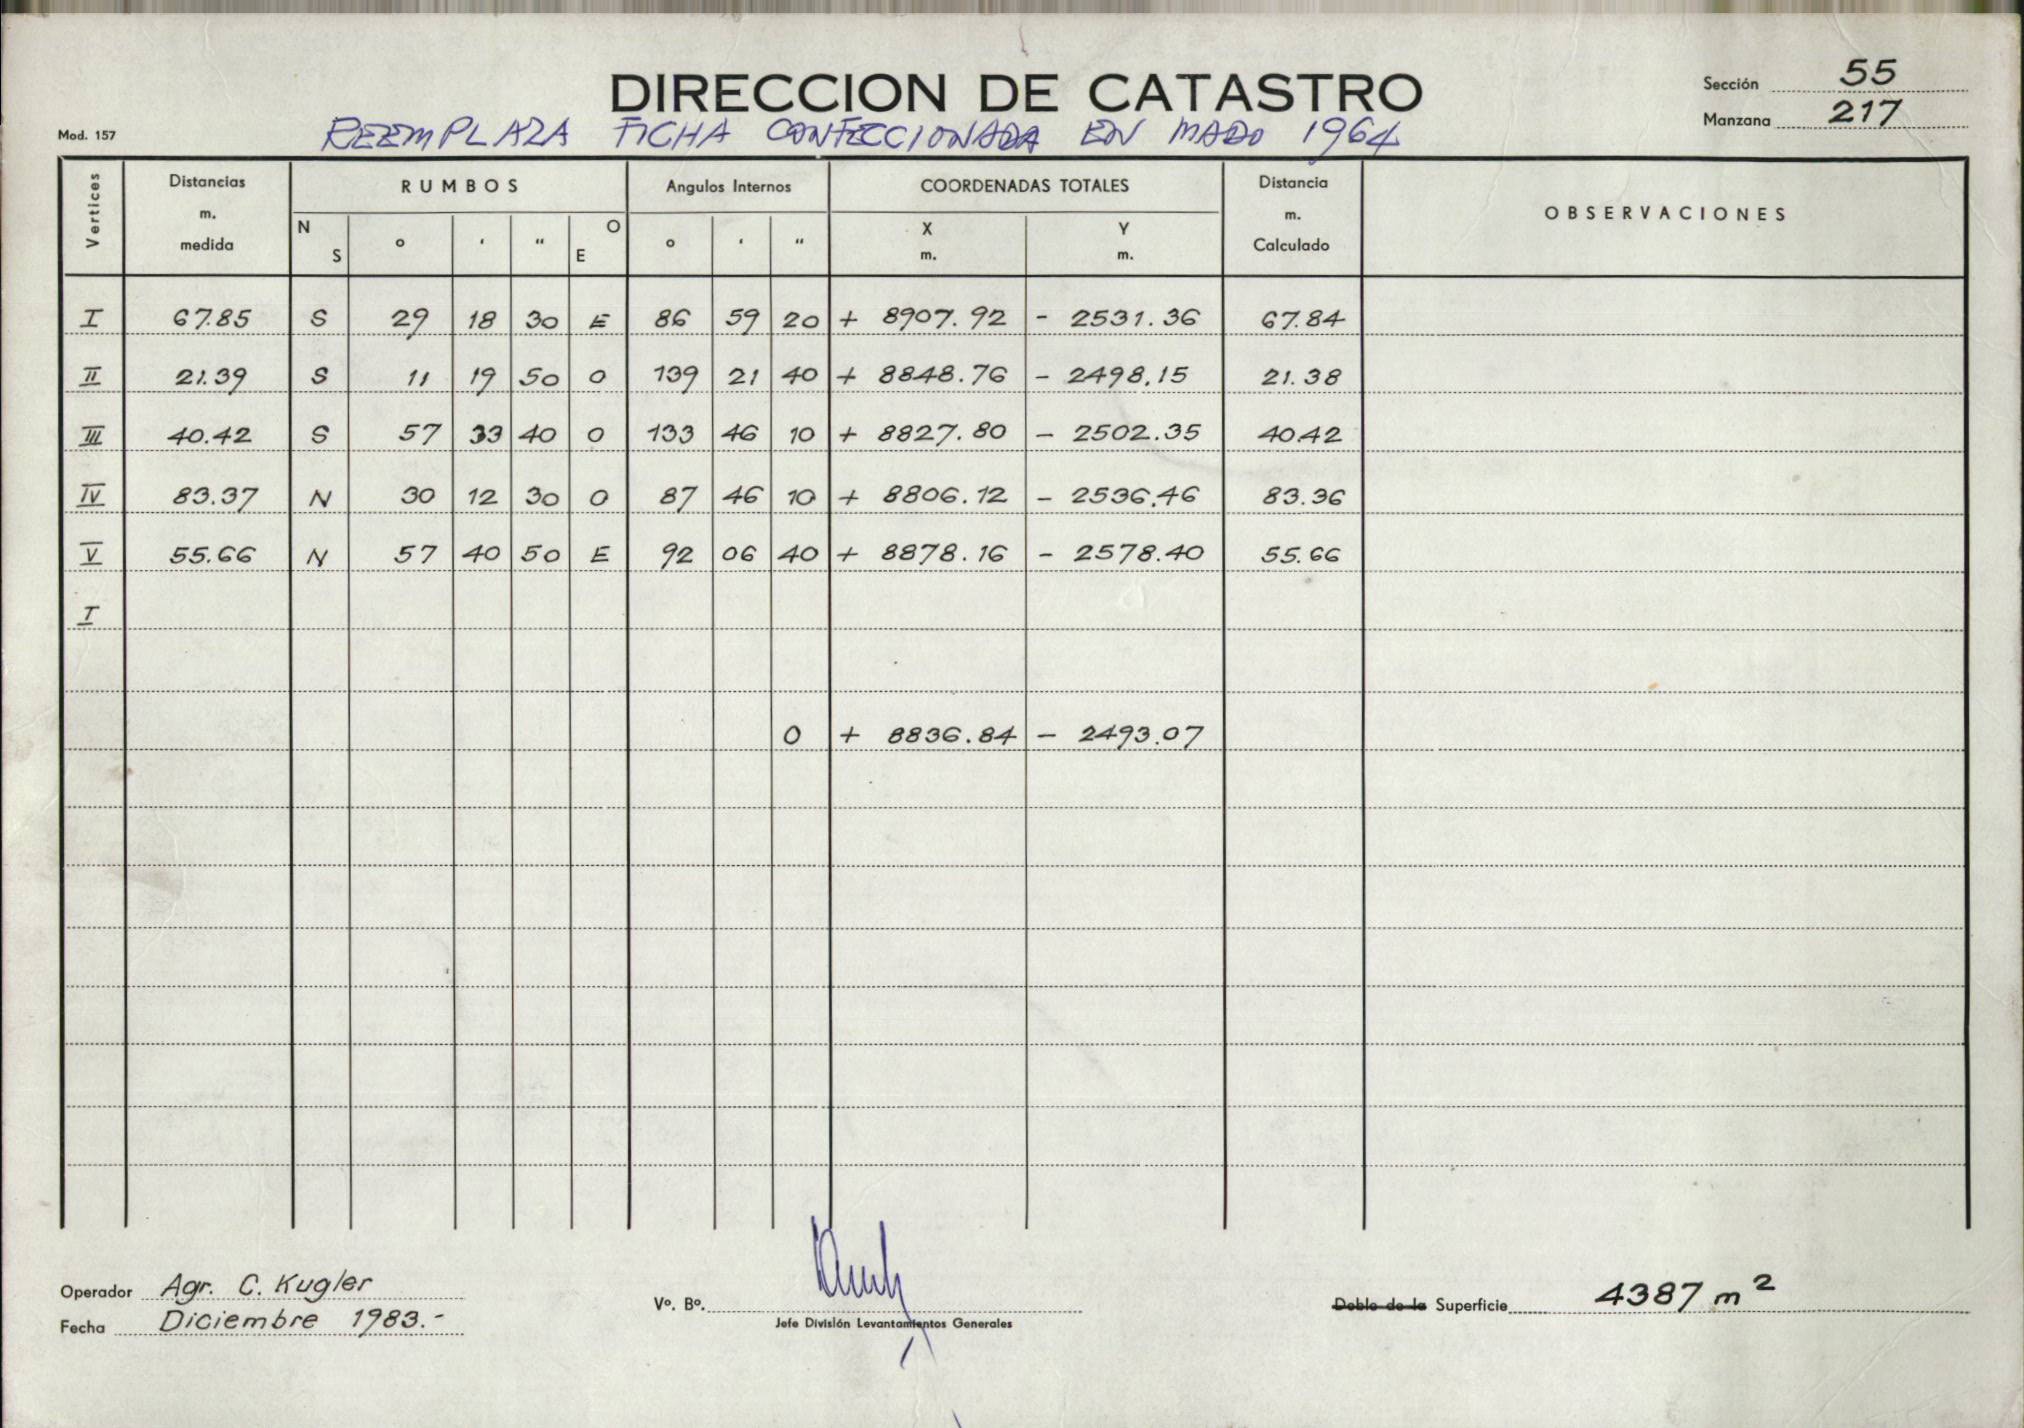 DIRECCION DE CATASTRO
Sección 55
Manzana 217
Mod. 157
REEMPLAZA FICHA CONFECCIONADA EN MAYO 1964
Vertices Distancias m. medida RUMBOS Angulos Internos COORDENADAS TOTALES Distancia m. Calculado OBSERVACIONES
N S ° ' " O E ° ' " X m. Y m.
I 67.85 S 29 18 30 E 86 59 20 + 8907.92 - 2531.36 67.84
II 21.39 S 11 19 50 O 139 21 40 + 8848.76 - 2498.15 21.38
III 40.42 S 57 33 40 O 133 46 10 + 8827.80 - 2502.35 40.42
IV 83.37 N 30 12 30 O 87 46 10 + 8806.12 - 2536.46 83.36
V 55.66 N 57 40 50 E 92 06 40 + 8878.16 - 2578.40 55.66
I
O + 8836.84 - 2493.07
Operador Agr. C. Kugler
Fecha Diciembre 1983.-
Vº. Bº.
Jefe División Levantamientos Generales
Doble de la Superficie 4387 m²